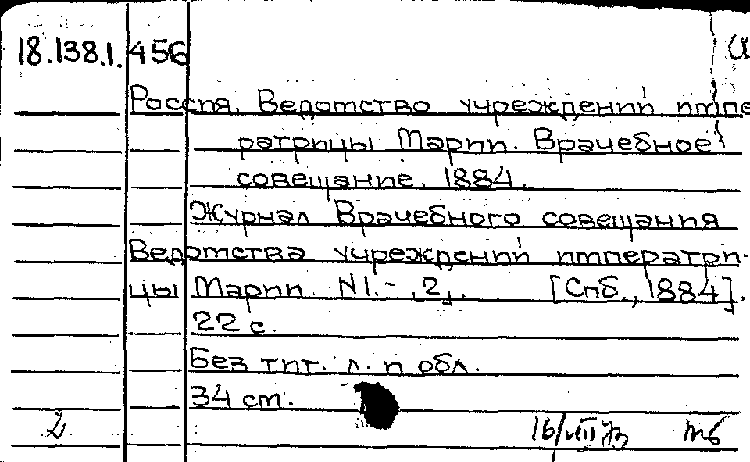 18.138.1.456
Россия. Ведомство учреждений импе
ратрицы Марии. Врачебное
совещание. 1884.
Журнал Врачебного совещания
Ведомства учреждений императри-
цы Марии. N1.-,2,. [Спб., 1884].
22 с.
Без тит. л. и обл.
34 ст.
2 16/VIII 73